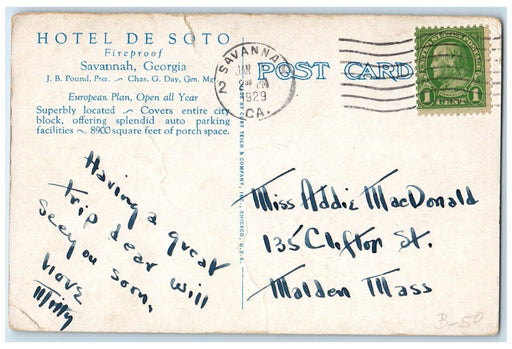 HOTEL DE SOTO
Fireproof
Savannah, Georgia
J. B. Pound, Pres. ~ Chas. G. Day, Gen. Mgr.
European Plan, Open all Year
Superbly located ~ Covers entire city
block, offering splendid auto parking
facilities ~ 8900 square feet of porch space.
Having a great
trip dear will
see you soon,
love
Mitty
SAVANNAH
JAN
2
PM
1929
GA.
2
POST CARD
BY CURT TEICH & COMPANY, INC., CHICAGO, U.S.A.
1
1
Miss Addie MacDonald
135 Clifton St.
Malden Mass
B-50